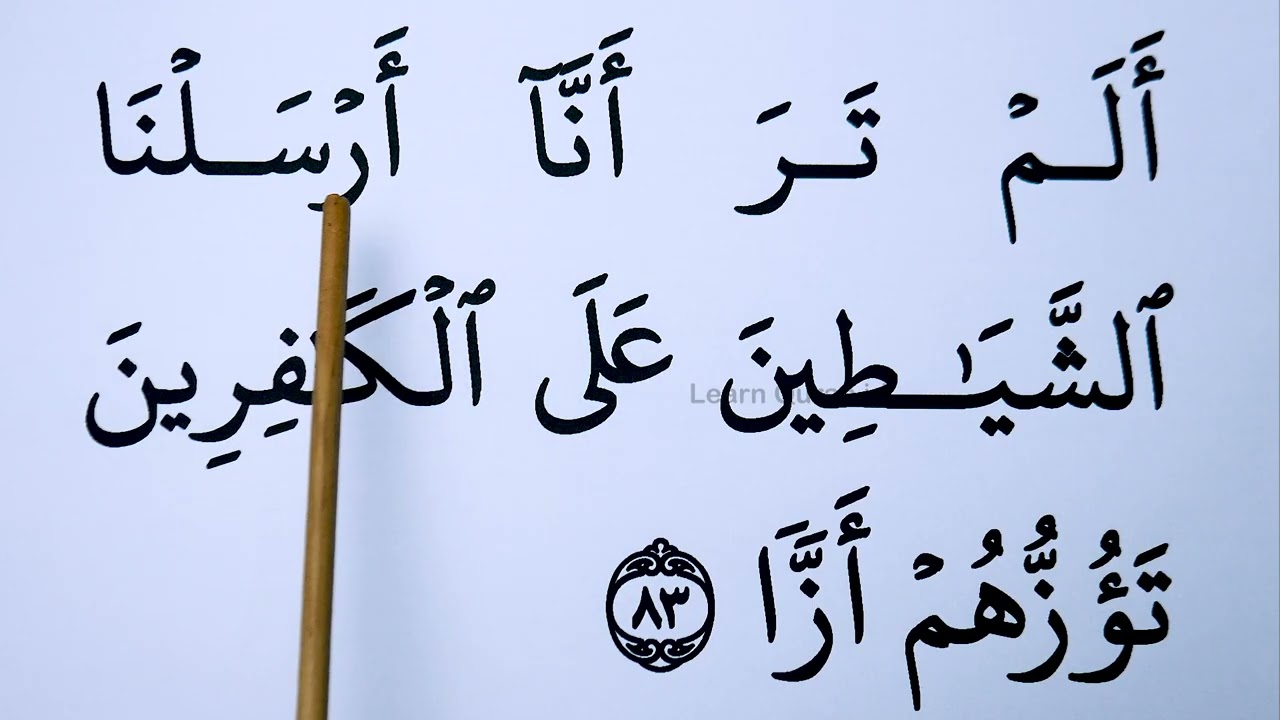 أَلَمۡ تَرَ أَنَّآ أَرۡسَلۡنَا
ٱلشَّيَٰطِينَ عَلَى ٱلۡكَٰفِرِينَ
تَؤُزُّهُمۡ أَزَّا ٨٣
Learn